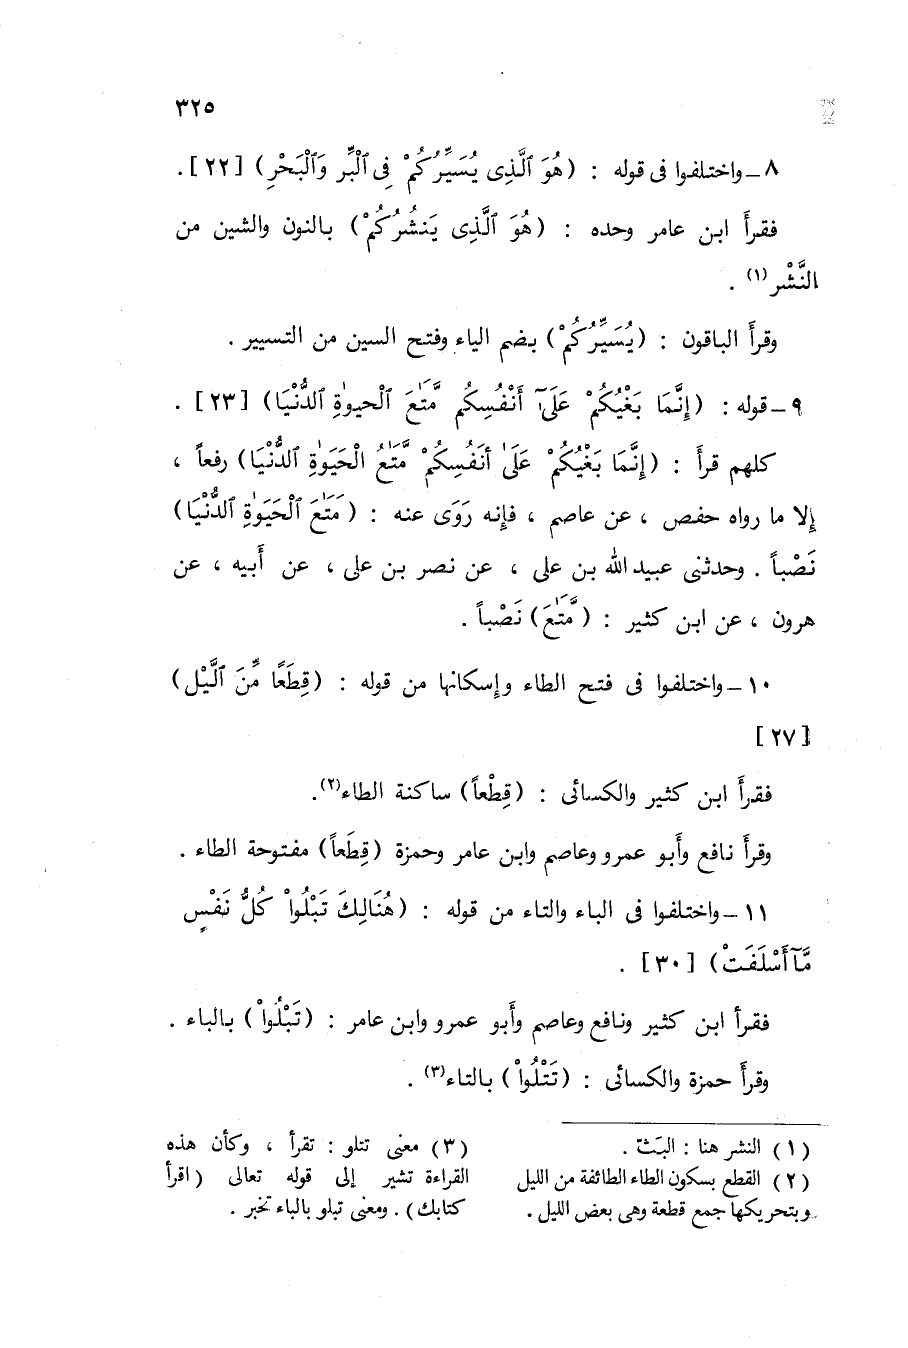 ٣٢٥
٨ – واختلفوا فى قوله : ( هُوَ ٱلَّذِى يُسَيِّرُكُمْ فِى ٱلْبَرِّ وَٱلْبَحْرِ ) [ ٢٢ ] .
فقرأَ ابن عامر وحده : ( هُوَ الَّذِى يَنشُرُكُمْ ) بالنون والشين من
النَّشْر(١) .
وقرأَ الباقون : ( يُسَيِّرُكُمْ ) بضم الياء وفتح السين من التسيير .
٩ – قوله : ( إِنَّمَا بَغْيُكُمْ عَلَىٰٓ أَنْفُسِكُم مَّتَٰعَ ٱلْحيوٰةِ ٱلدُّنْيَا ) [ ٢٣ ] .
كلهم قرأَ : ( إِنَّمَا بَغْيُكُمْ عَلَىٰ أَنفُسِكُمْ مَّتَٰعُ الْحَيَوٰةِ ٱلدُّنْيَا ) رفعاً ،
إِلا ما رواه حفص ، عن عاصم ، فإِنه رَوَى عنه : ( مَتَٰعَ ٱلْحَيَوٰةِ ٱلدُّنْيَا )
نَصْباً . وحدثنى عبيد الله بن على ، عن نصر بن على ، عن أَبيه ، عن
هرون ، عن ابن كثير : ( مَّتَٰعَ ) نَصْباً .
١٠ – واختلفوا فى فتح الطاء وإسكانها من قوله : ( قِطَعًا مِّنَ ٱلَّيْلِ )
[ ٢٧ ]
فقرأَ ابن كثير والكسائى : ( قِطْعاً ) ساكنة الطاء(٢).
وقرأَ نافع وأَبو عمرو وعاصم وابن عامر وحمزة ( قِطَعاً ) مفتوحة الطاء .
١١ – واختلفوا فى الباء والتاء من قوله : ( هُنَالِكَ تَبْلُواْ كُلُّ نَفْسٍ
مَّآ أَسْلَفَتْ ) [ ٣٠ ] .
فقرأ ابن كثير ونافع وعاصم وأَبو عمرو وابن عامر : ( تَبْلُواْ ) بالباء .
وقرأَ حمزة والكسائى : ( تَتْلُواْ ) بالتاء(٣) .
( ١ ) النشر هنا : البَثّ .
( ٢ ) القطع بسكون الطاء الطائفة من الليل
وبتحريكها جمع قطعة وهى بعض الليل .
( ٣ ) معنى تتلو : تقرأ ، وكأن هذه
القراءة تشير إلى قوله تعالى ( اقرأ
كتابك ) . ومعنى تبلو بالباء تخبر .